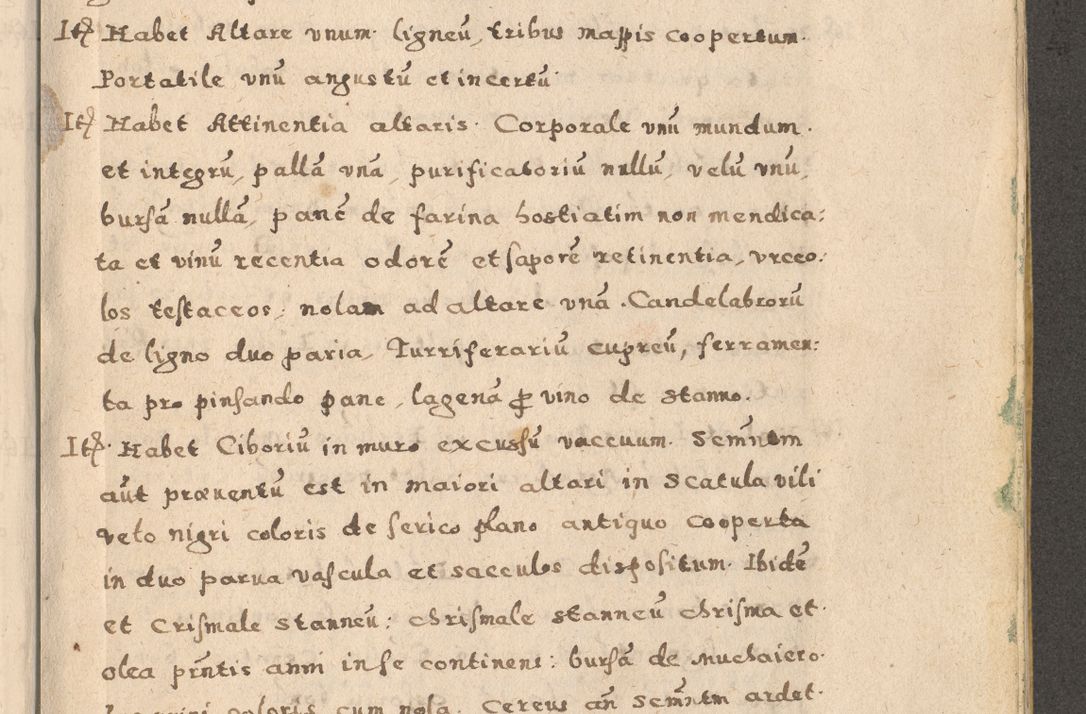 Itẽ Habet Altare vnum ligneũ, tribus mappis coopertum.
Portatile vnũ angustũ et incertũ
Itẽ Habet Attinentia altaris. Corporale vnũ mundum.
et integrũ, pallã vnã, purificatoriũ nullũ, velũ vnũ,
bursã nullã, panẽ de farina hostiatim non mendica:
ta et vinũ recentia odorẽ et saporẽ retinentia, vrceo:
los testaceos, nolam ad altare vnã. Candelabrorũ
de ligno duo paria, Turriferariũ cupreũ, ferramen:
ta pro pinsando pane, lagenã ꝓ vino de stanno.
Itẽ Habet Ciboriũ in muro excussũ vaccuum. Scm̃ntm
aũt præuentũ est in maiori altari in Scatula vili
velo nigri coloris de serico plano antiquo cooperta
in duo parua vascula et sacculos dispositum. Ibidẽ
et Crismale stanneũ: chrismale stanneũ chrisma et
olea prñtis anni in se continens: bursã de Muchaiero
coloris cum nola. Cereus añ Scm̃ntm ardet.